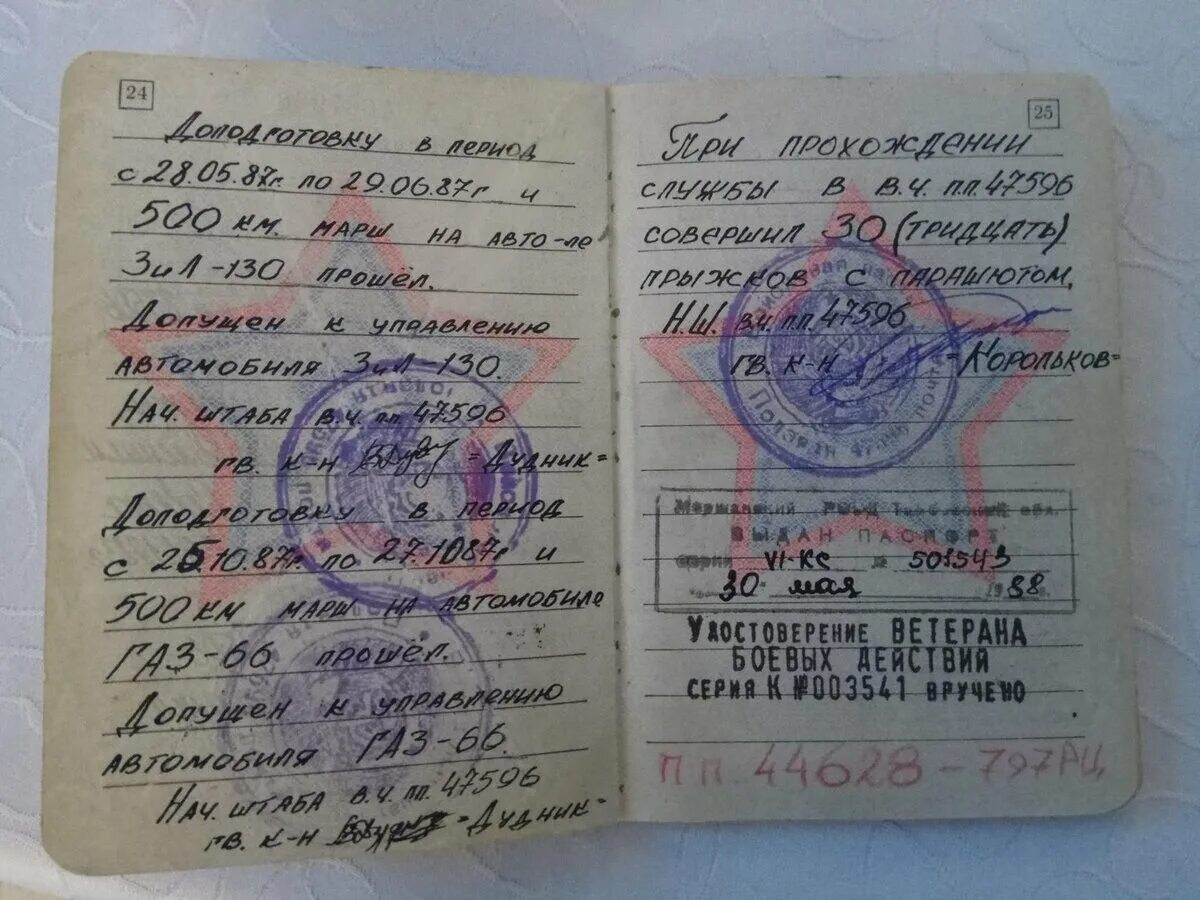 24
Доподготовку в период
с 28.05.87г. по 29.06.87г и
500 км. марш на авто-ле
ЗиЛ-130 прошёл.
Допущен к управлению
автомобиля ЗиЛ-130.
Нач. штаба в.ч. пп 47596
гв. к-н =Дудник=
Доподготовку в период
с 25.10.87г. по 27.1087г и
500 км марш на автомобиле
ГАЗ-66 прошёл.
Допущен к управлению
автомобиля ГАЗ-66.
Нач. штаба в.ч. пп. 47596
гв. к-н =Дудник=
25
При прохождении
службы в в.ч. пп.47596
совершил 30 (тридцать)
прыжков с парашютом.
Н.Ш. в.ч. пп.47596
гв. к-н =Корольков=
обл.
ВЫДАН ПАСПОРТ
серии VI-КС № 501543
30 мая 1988
Удостоверение ВЕТЕРАНА
БОЕВЫХ ДЕЙСТВИЙ
СЕРИЯ К №003541 ВРУЧЕНО
ПП 44628-797РЦ